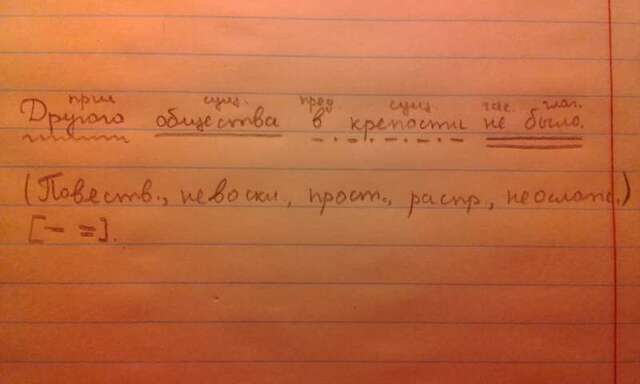 прил сущ. пред сущ час. глаг.
Другого общества в крепости не было.
(Повеств., невоскл, прост., распр, неослож.)
[— =].